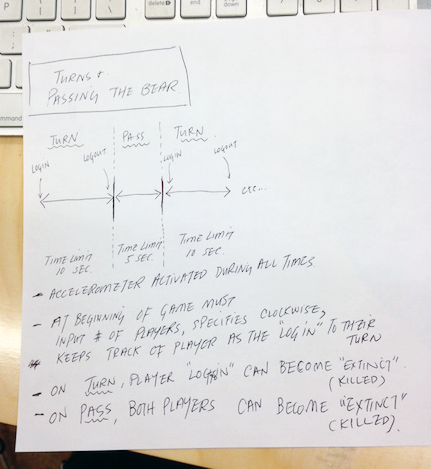 delete
end
down
command
TURNS &
PASSING THE BEAR
TURN PASS TURN
LOGIN LOGOUT LOGIN LOGOUT
etc...
TIME LIMIT 10 SEC.
TIME LIMIT 5 SEC.
TIME LIMIT 10 SEC.
- ACCELEROMETER ACTIVATED DURING ALL TIMES.
- AT BEGINNING OF GAME MUST
INPUT # OF PLAYERS, SPECIFIES CLOCKWISE,
KEEPS TRACK OF PLAYER AS THE "LOGIN" TO THEIR
TURN
- ON TURN, PLAYER "LOGON" CAN BECOME "EXTINCT".
(KILLED)
- ON PASS, BOTH PLAYERS CAN BECOME "EXTINCT"
(KILLED).